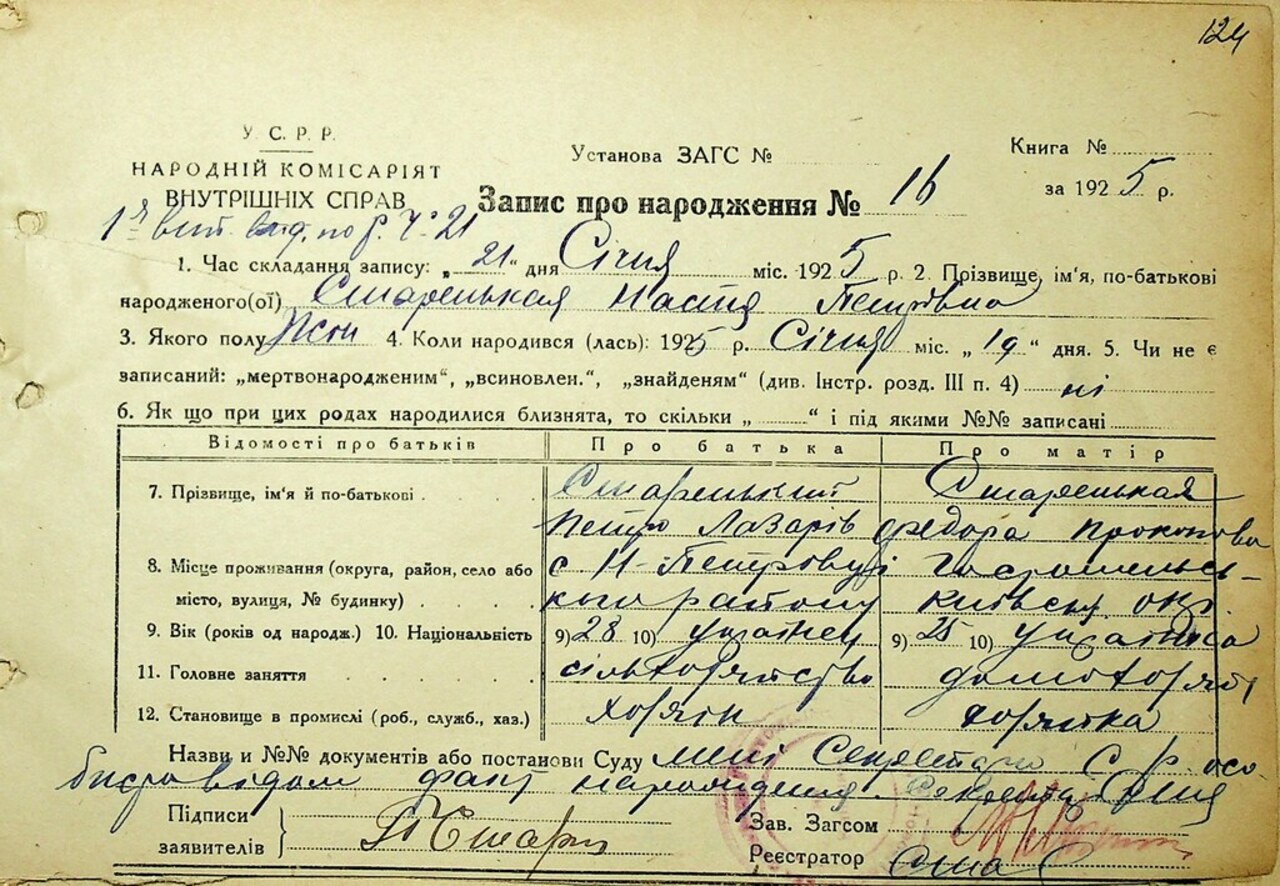 124
У.С.Р.Р.
НАРОДНІЙ КОМІСАРІЯТ
ВНУТРІШНІХ СПРАВ
Установа ЗАГС №
Книга №
за 1925 р.
Запис про народження № 16
1. Час складання запису: „21“ дня Січня міс. 1925 р. 2. Прізвище, ім'я, по-батькові
народженого(ої) Старенькая Настя Петрівна
3. Якого полу жон 4. Коли народився (лась): 1925 р. Січня міс. „19“ дня. 5. Чи не є
записаний: „мертвонародженим“, „всиновлен.“, „знайденям“ (див. Інстр. розд. III п. 4) ні
6. Як що при цих родах народилися близнята, то скільки „ “ і під якими №№ записані
Відомості про батьків Про батька Про матір
7. Прізвище, ім'я й по-батькові Старенький Старенькая
Петро Лазарів Федора Прокопова
8. Місце проживання (округа, район, село або с Н-Петровці Гостомельсь-
місто, вулиця, № будинку) кого району Київськ. окр.
9. Вік (років од народж.) 10. Національність 9) 28 10) Українец 9) 25 10) Українка
11. Головне заняття
12. Становище в промислі (роб., служб., хаз.)
Назви и №№ документів або постанови Суду мені Секретарю С. Р. осо-
бисто відом факт народження
Підписи
заявителів П Стар
Зав. Загсом
Реєстратор